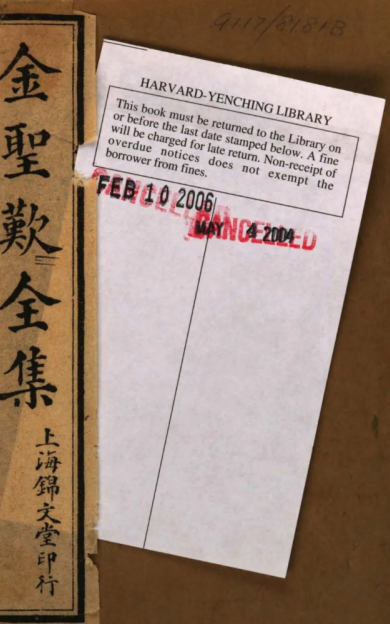 9117/8181B
金聖歎全集
上海錦文堂印行
HARVARD-YENCHING LIBRARY
This book must be returned to the Library on
or before the last date stamped below. A fine
will be charged for late return. Non-receipt of
overdue notices does not exempt the
borrower from fines.
FEB 10 2006
CANCELLED
MAY 4 2004
CANCELLED